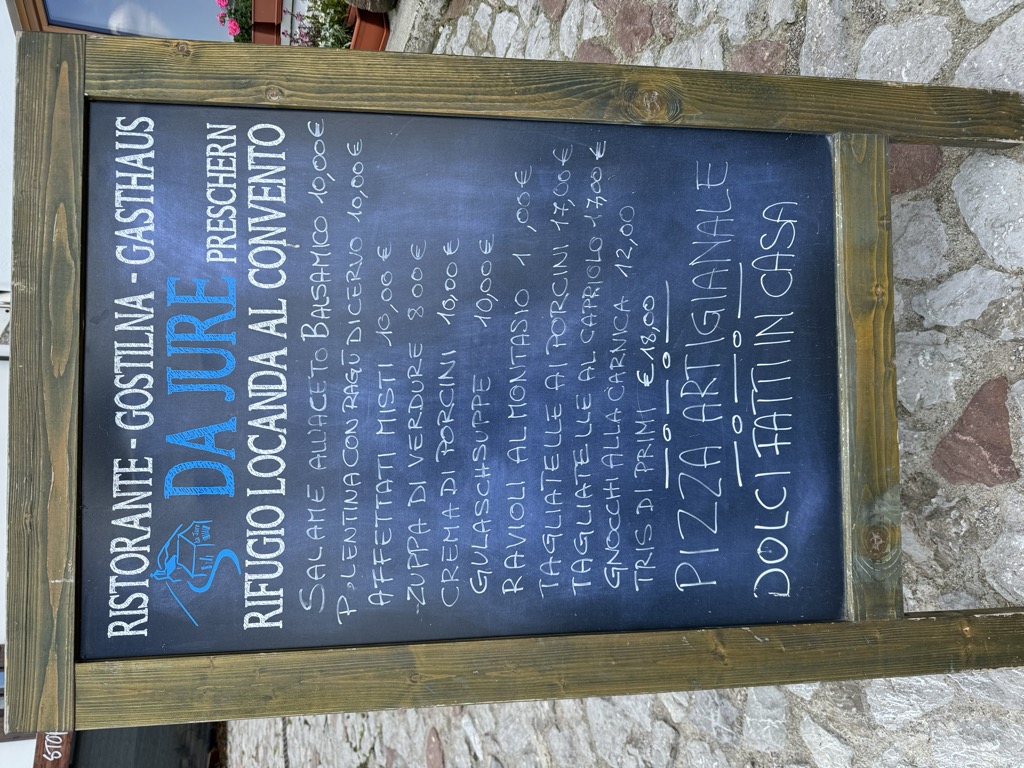 STOP
RISTORANTE - GOSTILNA - GASTHAUS
da Jure
DA JURE PRESCHERN
RIFUGIO LOCANDA AL CONVENTO
SALAME ALL'ACETO BALSAMICO 10,00€
POLENTINA CON RAGŪ DI CERVO 10,00€
AFFETTATI MISTI 10,00€
-ZUPPA DI VERDURE 8 00€
CREMA DI PORCINI 10,00€
GULASCHSUPPE 10,00€
RAVIOLI AL MONTASIO 1 ,00€
TAGLIATELLE AI PORCINI 17,00€
TAGLIATELLE AL CAPRIOLO 17,00€
GNOCCHI ALLA CARNICA 12,00
TRIS DI PRIMI €18,00
PIZZA ARTIGIANALE
DOLCI FATTI IN CASA